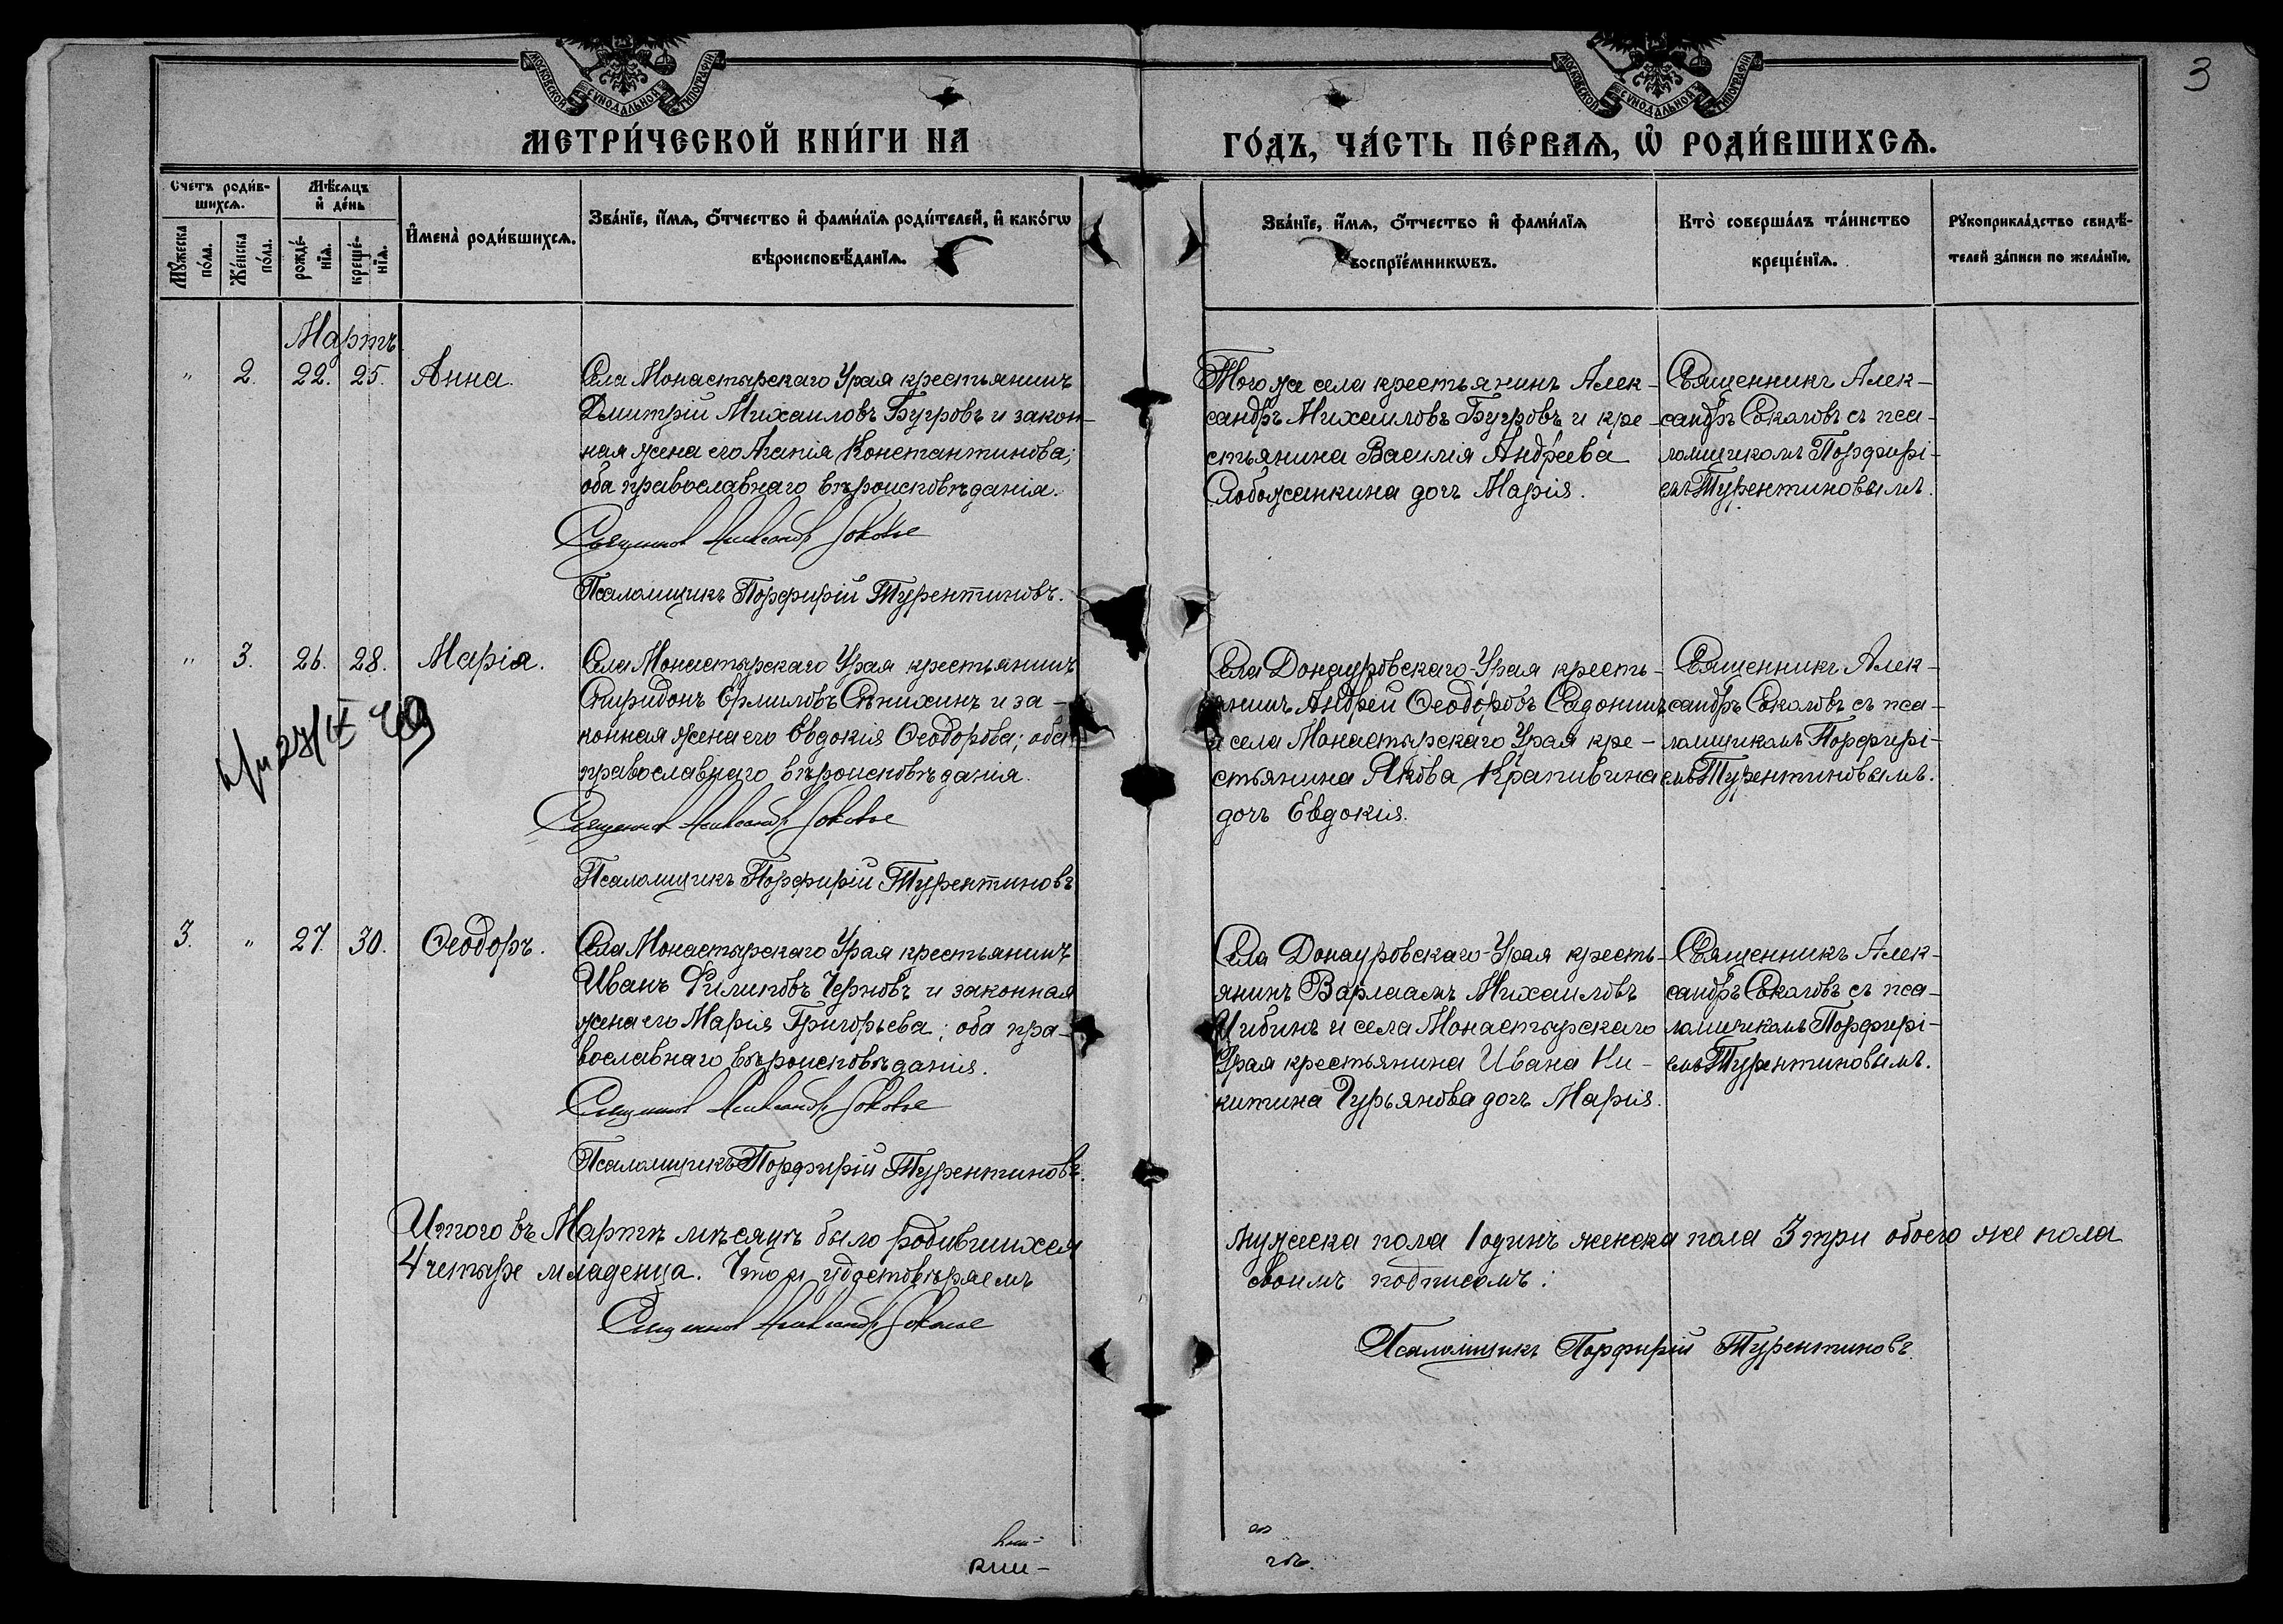 3
МОСКОВСКОЙ СѴНОДАЛЬНОЙ ТИПОГРАФІИ
МОСКОВСКОЙ СѴНОДАЛЬНОЙ ТИПОГРАФІИ
МЕТРИ́ЧЕСКОЙ КНИ́ГИ НА
ГО́ДЪ, ЧА́СТЬ ПЕ́РВАѦ, Ѡ РОДИ́ВШИХСѦ.
Счетъ роди́в-
шихсѧ.
Мꙋжеска
по́ла.
Же́нска
по́ла.
Мѣ́сѧцъ
и де́нь
рожде́-
нїѧ.
креще́-
нїѧ.
Имена̀ роди́вшихсѧ.
Зва́нїе, и́мѧ, ѻ́тчество и фами́лїѧ роди́телей, и како́гѡ
вѣроисповѣ́данїѧ.
Зва́нїе, и́мѧ, ѻ́тчество и фами́лїѧ
воспрїе́мникѡвъ.
Кто̀ соверша́лъ та́инство
креще́нїѧ.
Рꙋкоприкла́дство свидѣ́-
телей за́писи по жела́нїю.
Мартъ
" 2. 22. 25. Анна.
Села Монастырскаго Урая крестьянинъ
Дмитрій Михаиловъ Бугровъ и закон-
ная жена его Агапія Константинова;
оба православнаго вѣроисповѣданія.
Священникъ Александръ Соколовъ
Псаломщикъ Порфирій Турентиновъ.
Того же села крестьянинъ Алек-
сандръ Михаиловъ Бугровъ и кре-
стьянина Василія Андреева
Слобоженкина дочь Марія.
Священникъ Алек-
сандръ Соколовъ съ пса-
ломщикомъ Порфирі-
емъ Турентиновымъ.
" 3. 26. 28. Марія.
Села Монастырскаго Урая крестьянинъ
Спиридонъ Ермиловъ Сѣнихинъ и за-
конная жена его Евдокія Ѳеодорова; оба
православнаго вѣроисповѣданія.
Священникъ Александръ Соколовъ
Псаломщикъ Порфирій Турентиновъ
Села Донауровскаго-Урая кресть-
янинъ Андрей Ѳеодоровъ Садонинъ
и села Монастырскаго Урая кре-
стьянина Якова Крапивина
дочь Евдокія.
Священникъ Алек-
сандръ Соколовъ съ пса-
ломщикомъ Порфирі-
емъ Турентиновымъ.
3. " 27. 30. Ѳеодоръ.
Села Монастырскаго Урая крестьянинъ
Иванъ Филиповъ Черновъ и законная
жена его Марія Григорьева; оба пра-
вославнаго вѣроисповѣданія.
Священникъ Александръ Соколовъ
Псаломщикъ Порфирій Турентиновъ.
Села Донауровскаго-Урая кресть-
янинъ Варлаамъ Михаиловъ
Цибинъ и села Монастырскаго
Урая крестьянина Ивана Ни-
китина Гурьянова дочь Марія.
Священникъ Алек-
сандръ Соколовъ съ пса-
ломщикомъ Порфирі-
емъ Турентиновымъ.
Итого въ Мартѣ мѣсяцѣ было родившихся
мужеска пола 1 одинъ женска пола 3 три обоего же пола
4 четыре младенца. Что и удостовѣряемъ
своимъ подписомъ:
Священникъ Александръ Соколовъ
Псаломщикъ Порфирій Турентиновъ.